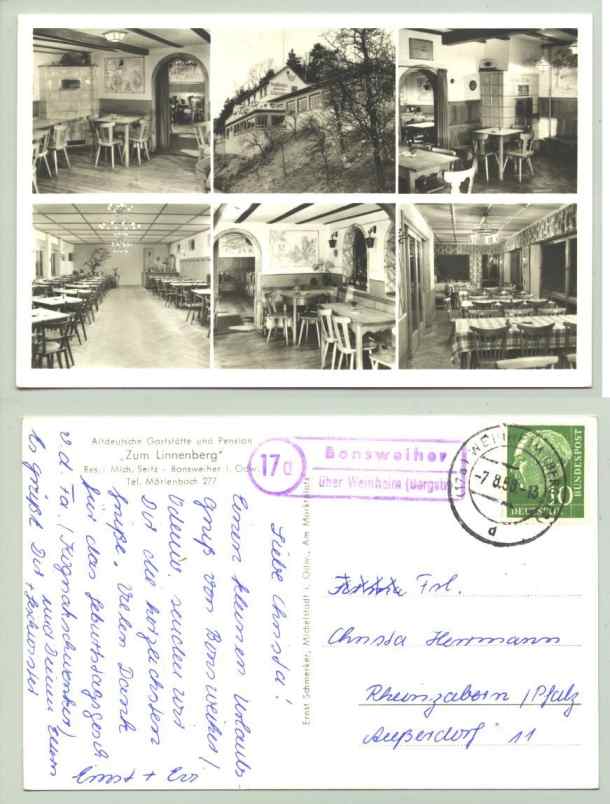 Altdeutsche Gaststätte und Pension
"Zum Linnenberg"
Bes.: Mich. Seitz - Bonsweiher i. Odw.
Tel. Mörlenbach 277
17a
Bonsweiher
über Weinheim (Bergstr
-7.8.58-13
d
10
DEUTSCHE
BUNDESPOST
Ernst Schmerker, Michelstadt i. Odw., Am Marktplatz
Liebe Christa!
Einen kleinen Urlaubs
gruß von Bonsweiher /
Odenw. senden wir
Dir die herzlichsten
Grüße. Vielen Dank
für das Geburtstagsgesch
v. d. Fa.
und Deinen Eltern
Es grüßt Dich
Ernst + Evi
Frl.
Christa Herrmann
Rheinzabern / Pfalz
Außerdorf 11